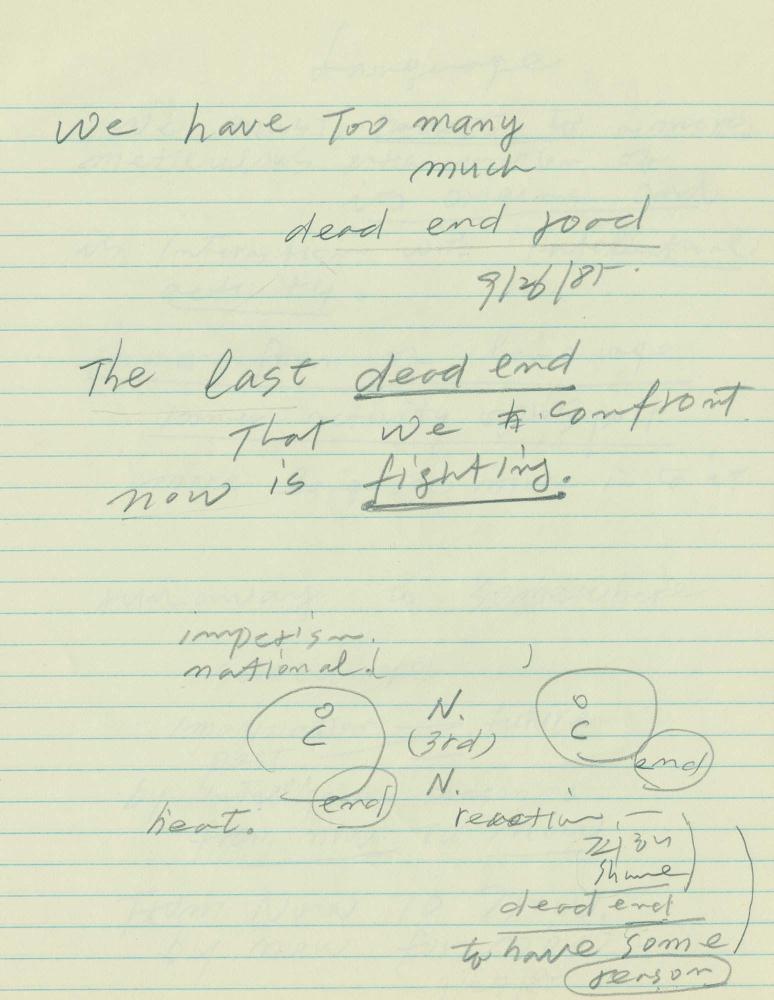 We have Too many
much
dead end road
9/26/85.
The last dead end
That we confront
now is fighting.
national. ( )
O N. O
C (3rd) C
end
end N.
heat. reaction. —
shame
dead end
to have some
reason